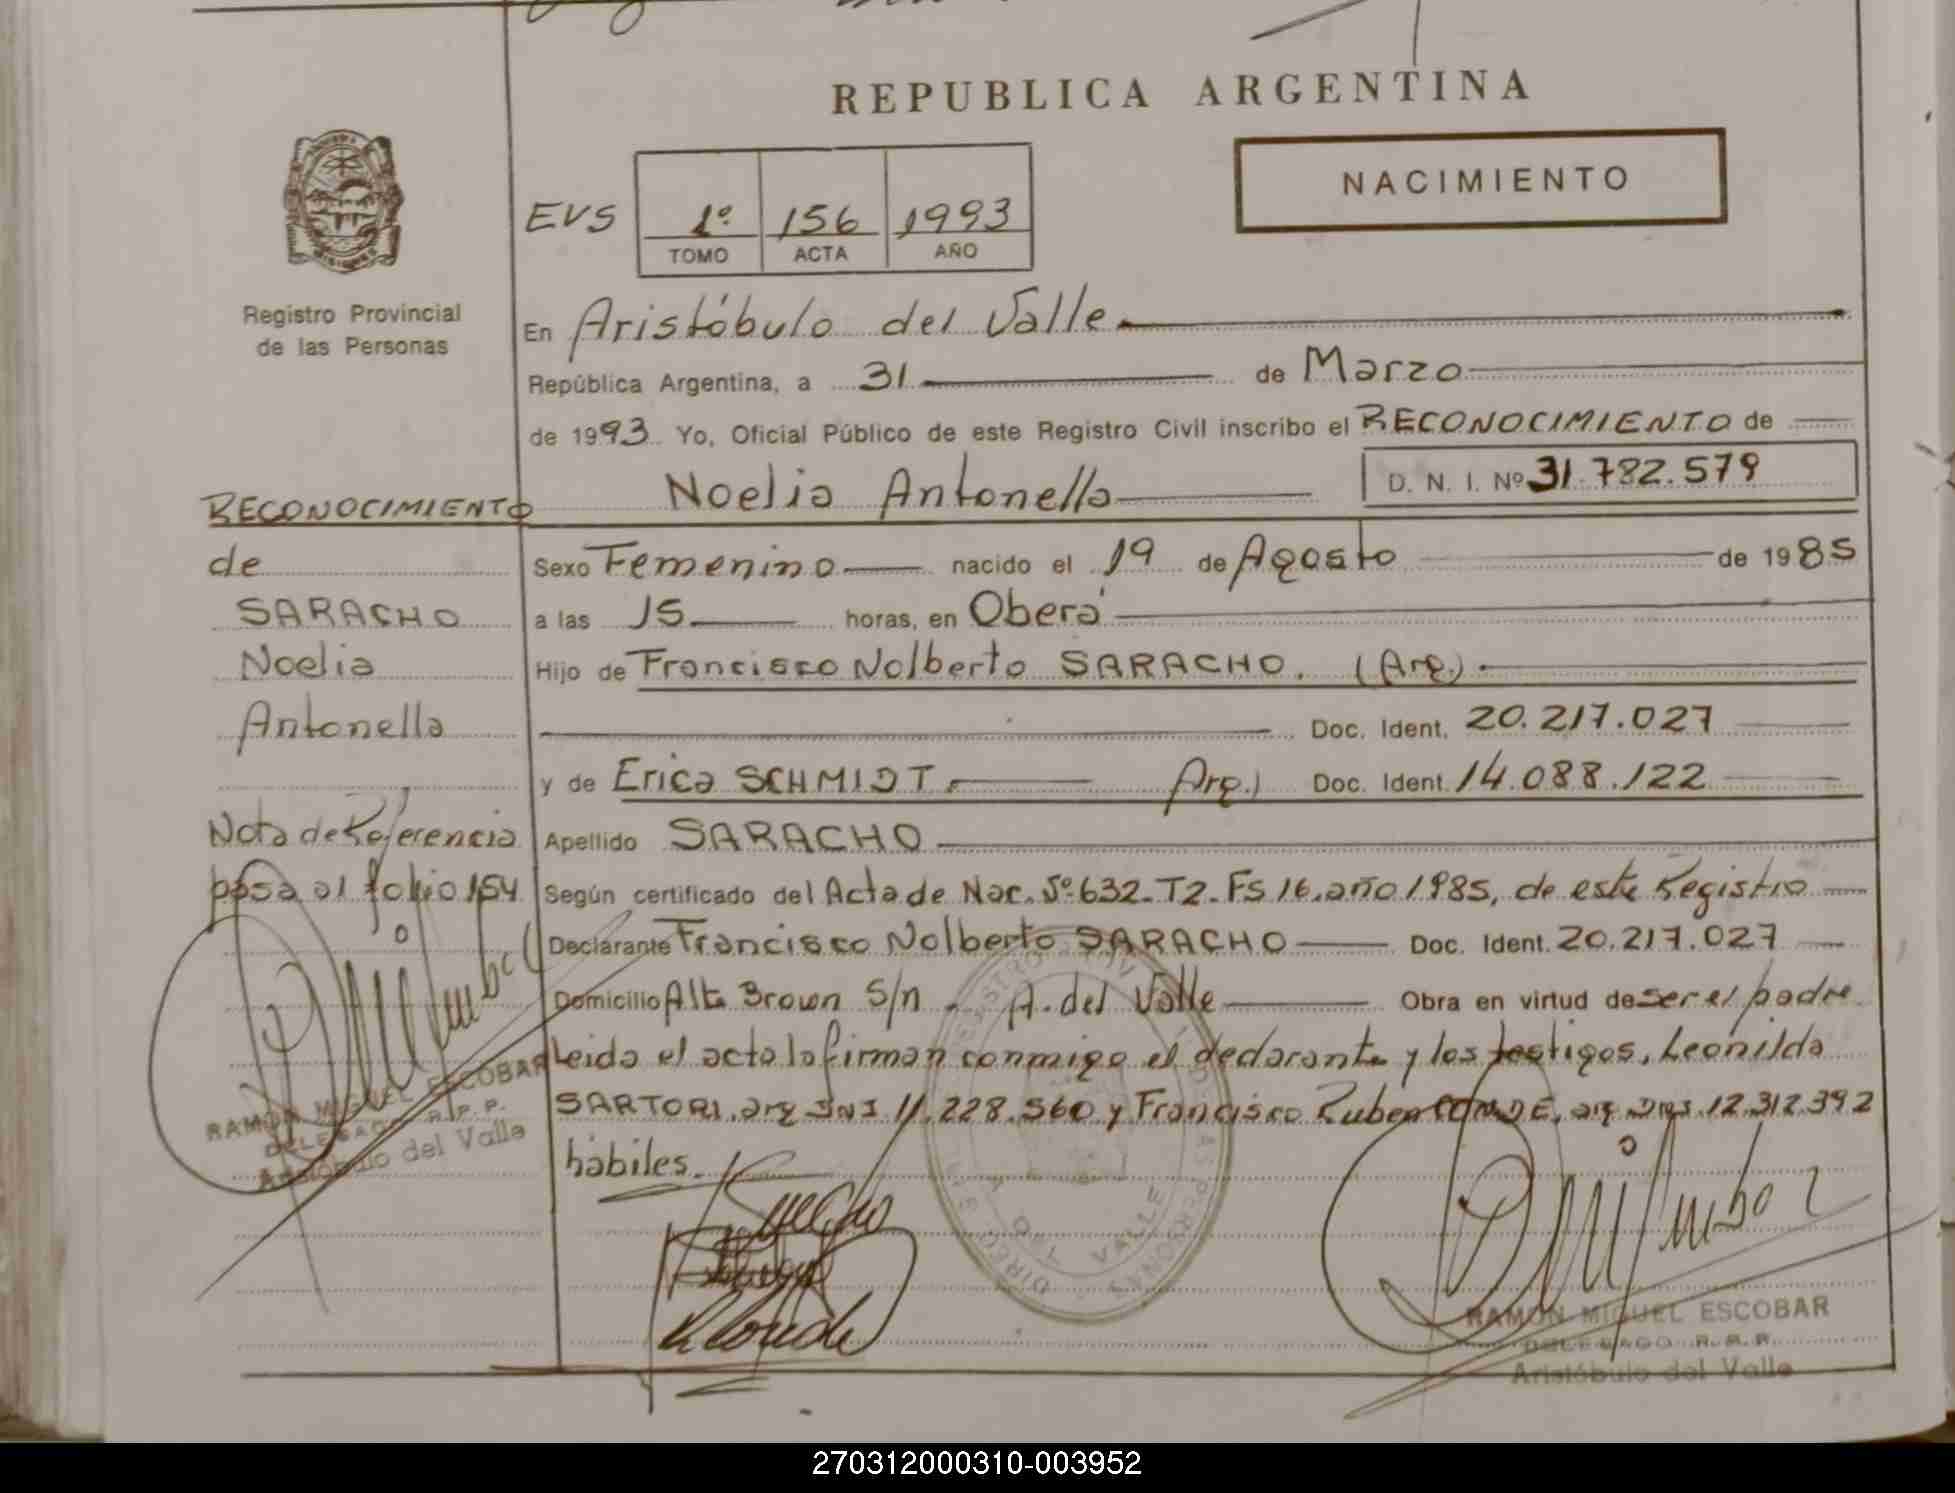 REPUBLICA ARGENTINA
NACIMIENTO
EVS 1º 156 1993
TOMO ACTA AÑO
Registro Provincial
de las Personas
En Aristóbulo del Valle
República Argentina, a 31 de Marzo
de 1993. Yo, Oficial Público de este Registro Civil inscribo el RECONOCIMIENTO de
Noelia Antonella D. N. I. Nº 31.782.579
RECONOCIMIENTO
de
SARACHO
Noelia
Antonella
Nota de Referencia
pasa al folio 154
RAMON MIGUEL ESCOBAR
DELEGADO R.P.P.
Aristóbulo del Valle
Sexo Femenino nacido el 19 de Agosto de 1985
a las 15 horas, en Oberá
Hijo de Francisco Nolberto SARACHO. (Arg.)
Doc. Ident. 20.217.027
y de Erica SCHMIDT. Arg.) Doc. Ident. 14.088.122
Apellido SARACHO
Según certificado del Acta de Nac. Nº 632-T2-Fs 16. año 1985, de este Registro
Declarante Francisco Nolberto SARACHO Doc. Ident. 20.217.027
Domicilio Alte Brown S/n - A. del Valle Obra en virtud de ser el padre
Leida el acta la firman conmigo el declarante y los testigos, Leonilda
SARTORI, arg DNI 11.228.560 y Francisco Ruben CONDE, arg DNI 12.312.392
hábiles.
DEL VALLE
RAMON MIGUEL ESCOBAR
DELEGADO R.P.P.
Aristóbulo del Valle
270312000310-003952